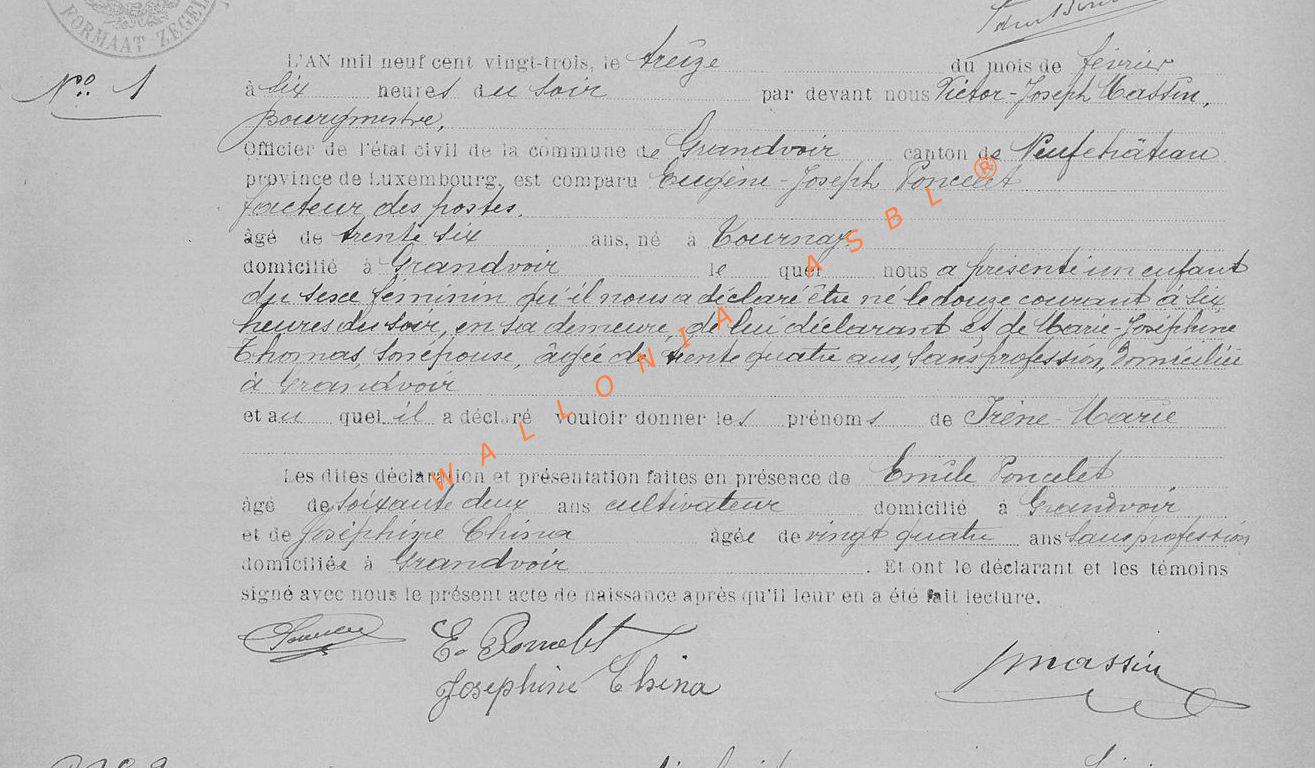 FORMAAT ZEGEL
N° 1
L'AN mil neuf cent vingt-trois, le treize du mois de février
à six heures du soir par devant nous Victor-Joseph Massin,
Bourgmestre,
Officier de l'état civil de la commune de Grandvoir canton de Neufchâteau
province de Luxembourg, est comparu Eugène-Joseph Poncelet
facteur des postes.
âgé de trente six ans, né à Tournay
domicilié à Grandvoir le quel nous a présenté un enfant
du sexe féminin qu'il nous a déclaré être né le douze courant à six
heures du soir, en sa demeure, de lui déclarant et de Marie-Joséphine
Thomas, son épouse, âgée de trente quatre ans, sans profession, domiciliée
à Grandvoir
et au quel il a déclaré vouloir donner les prénoms de Irène-Marie
Les dites déclaration et présentation faites en présence de Emile Poncelet
âgé de soixante deux ans cultivateur domicilié à Grandvoir
et de Joséphine China âgée de vingt quatre ans sans profession
domiciliée à Grandvoir . Et ont le déclarant et les témoins
signé avec nous le présent acte de naissance après qu'il leur en a été fait lecture.
E. Poncelet
Josephine China
Massin
WALLONIA ASBL ®